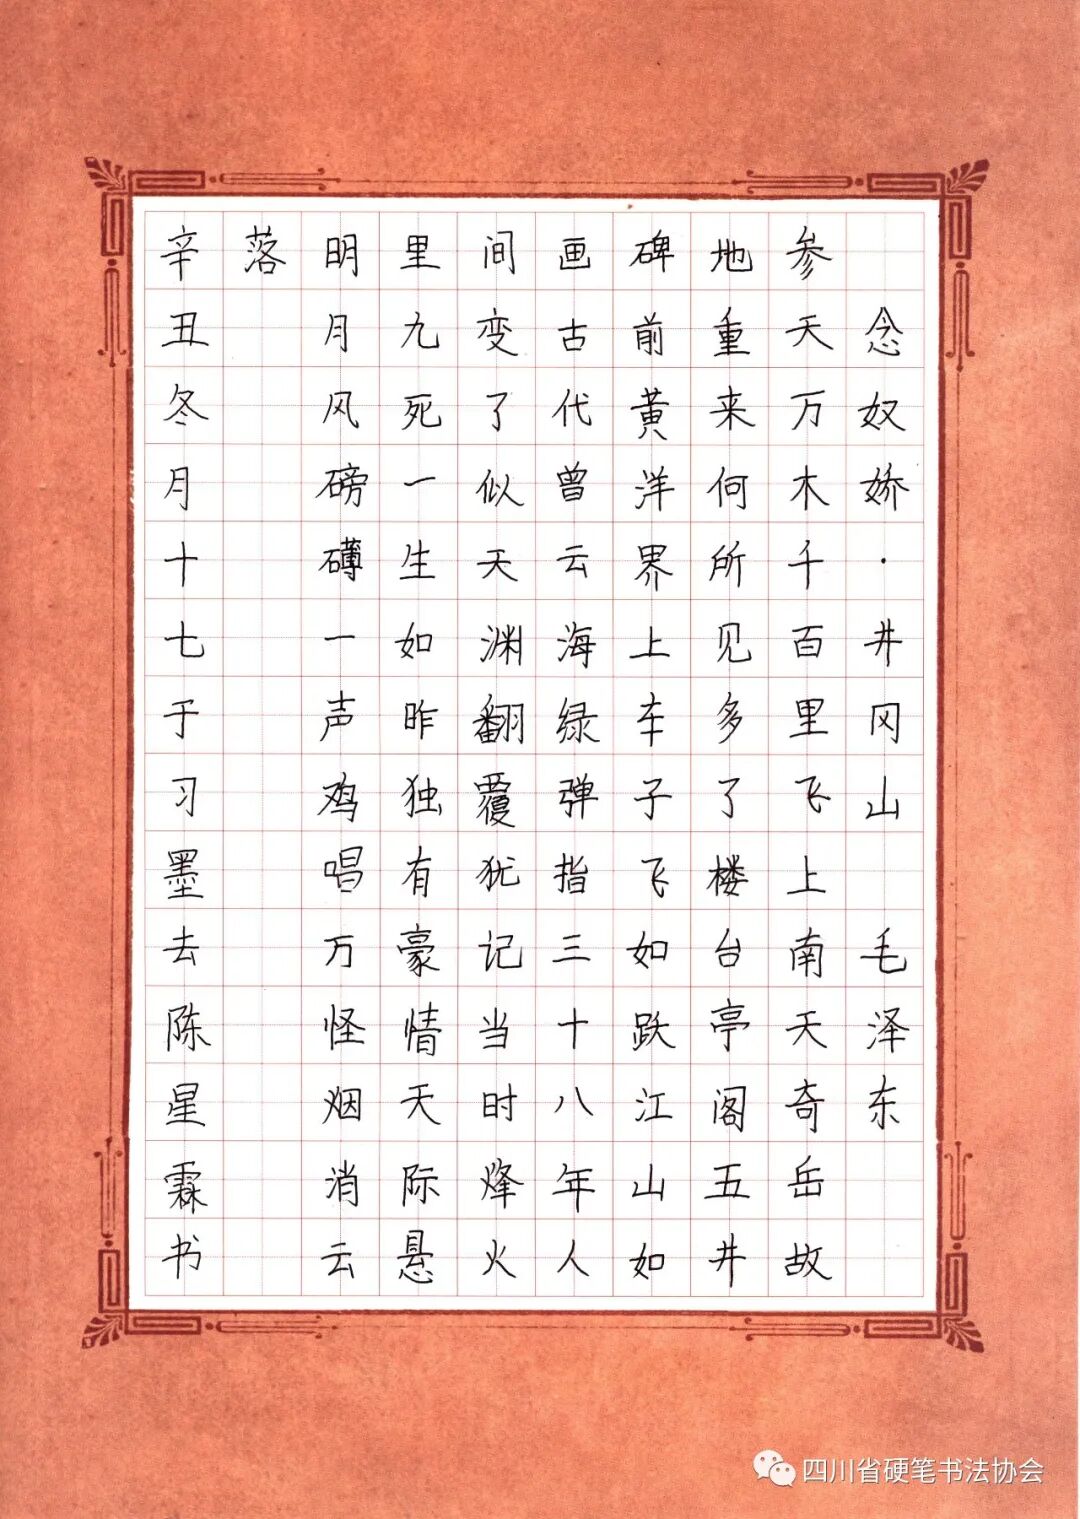 念奴娇·井冈山 毛泽东
参天万木千百里飞上南天奇岳故
地重来何所见多了楼台亭阁五井
碑前黄洋界上车子飞如跃江山如
画古代曾云海绿弹指三十八年人
间变了似天渊翻覆犹记当时烽火
里九死一生如昨独有豪情天际悬
明月风磅礴一声鸡唱万怪烟消云
落
辛丑冬月十七于习墨去陈星霖书
四川省硬笔书法协会